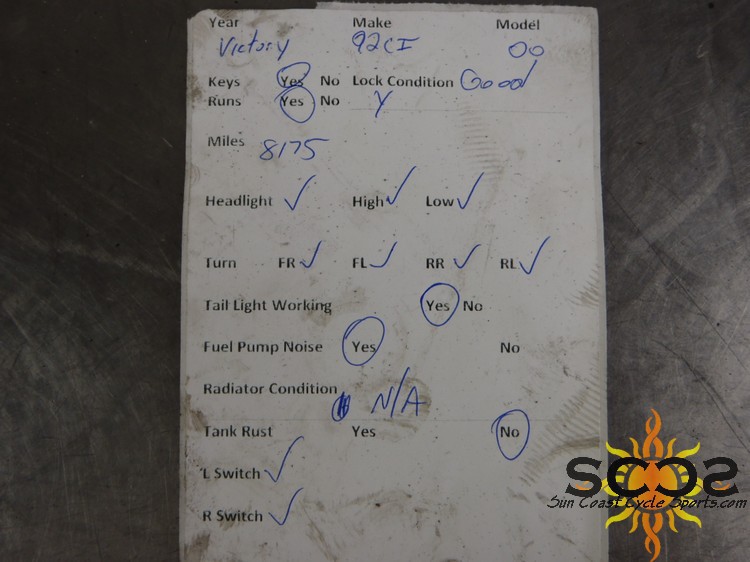 Year Make Model
Victory 92CI 00
Keys Yes No Lock Condition Good
Runs Yes No Y
Miles 8175
Headlight ✓ High ✓ Low ✓
Turn FR ✓ FL ✓ RR ✓ RL ✓
Tail Light Working Yes No
Fuel Pump Noise Yes No
Radiator Condition N/A
Tank Rust Yes No
L Switch ✓
R Switch ✓
SCCS
Sun Coast Cycle Sports.com